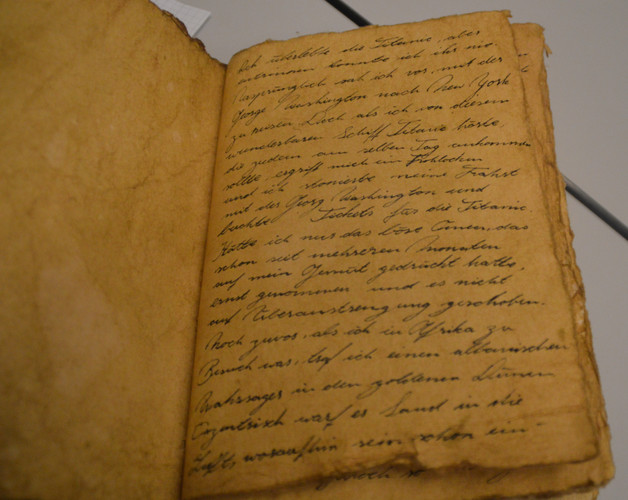 Ich überlebte die Titanic, aber
entrinnen konnte ich ihr nie.
Ursprünglich sah ich vor, mit der
George Washington nach New York
zu reisen. Doch als ich von diesem
wunderbaren Schiff Titanic hörte,
die zudem am selben Tag ankommen
sollte, ergriff mich ein Frohlocken
und ich stornierte meine Fahrt
mit der Georg Washington und
buchte Tickets für die Titanic.
Hätte ich nur das böse Omen, das
schon seit mehreren Monaten
auf mein Gemüt gedrückt hatte,
ernst genommen und es nicht
auf Überanstrengung geschoben.
Noch zuvor, als ich in Afrika zu
Besuch war, traf ich einen albanischen
Wahrsager in den goldenen Dünen
Exzentrisch warf er Sand in die
Luft, woraufhin sein schon ein-
jedoch